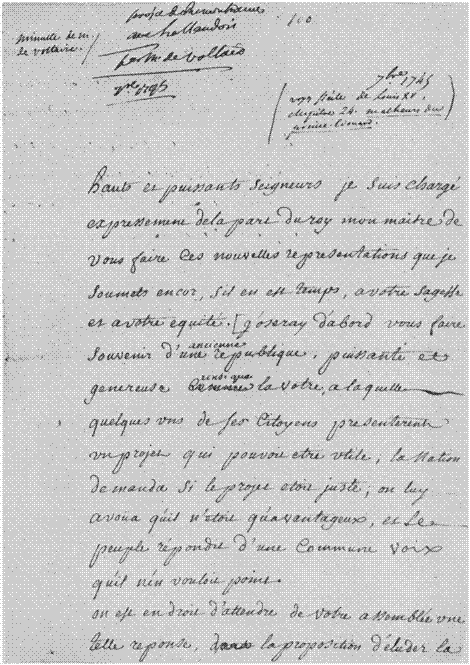 minutte de m.
de voltaire.
projet de remontrances
aux hollandois
par m. de voltaire
7bre 1745
100
7bre 1745
voys siècle de Louis XV.
chapitre 24. malheurs du
prince Edouard.
hauts et puissants Seigneurs je suis chargé
expressement de la part du roy mon maitre de
vous faire ces nouvelles representations que je
soumets encor, sil en est temps, a votre sagesse
et a votre equité. [j'oseray d'abord vous faire
souvenir d'une ancienne republique, puissante et
genereuse ainsi que la votre, a laquelle
quelques uns de ses Citoyens presenterent
un projet qui pouvoit etre utile, la Nation
demanda si le projet etoit juste; on luy
avoua qu'il n'étoit qu'avantageux, et Le
peuple répondit d'une Commune voix
qu'il n'en vouloit point.
on est en droit d'attendre de votre assemblée une
telle reponse, la proposition d'éluder la